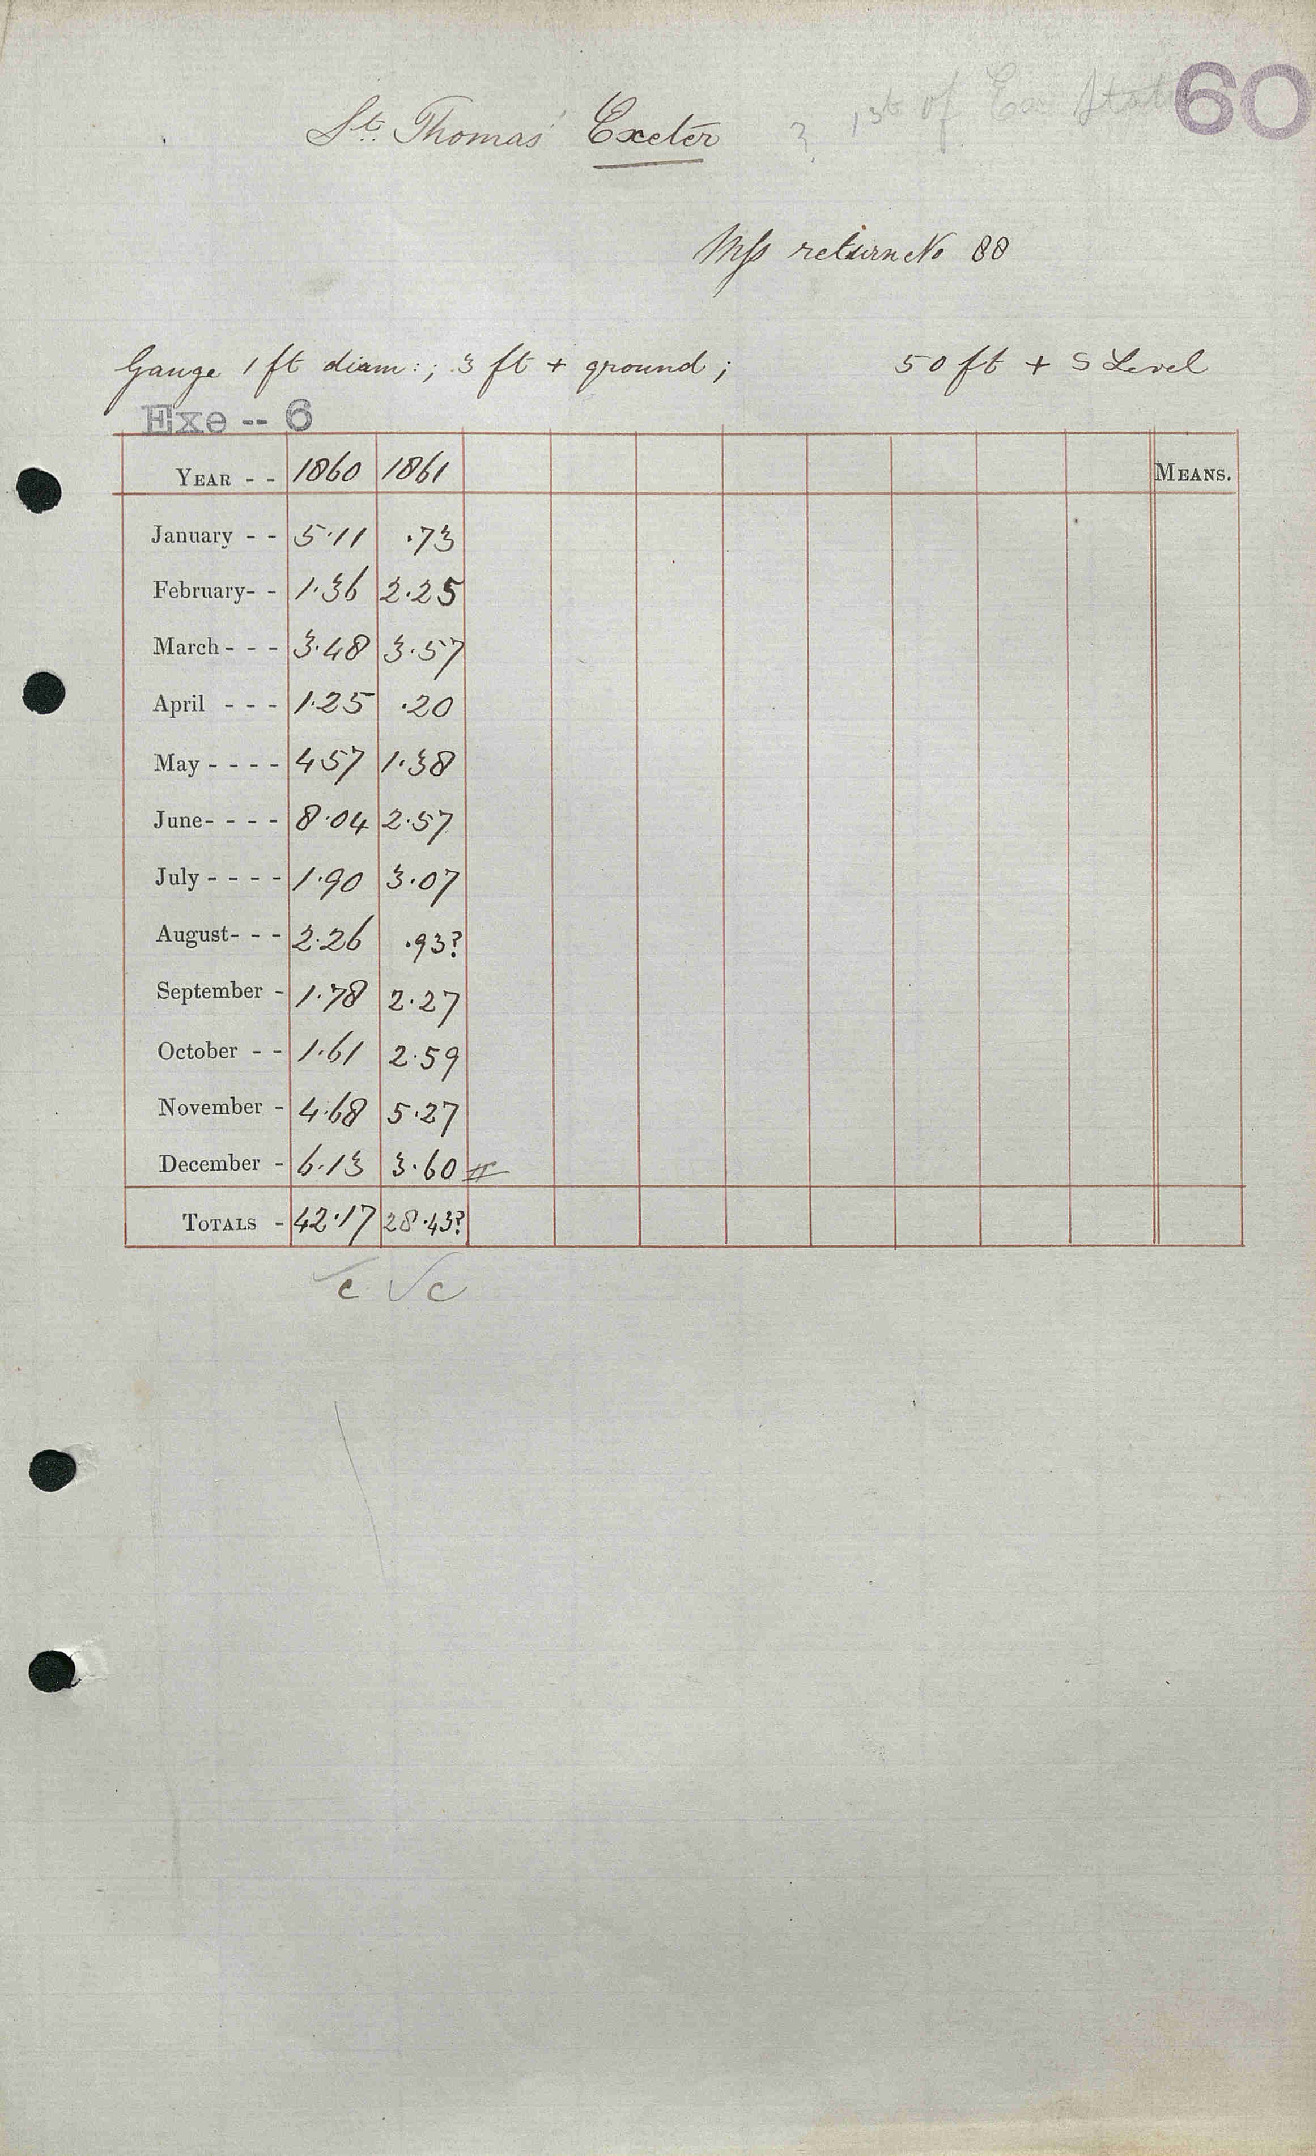 60
St. Thomas' Exeter ? 1st of Exe Stat
Mss return No 88
Gauge 1 ft diam:; 3 ft + ground; 50 ft + S Level
Exe -- 6
YEAR - - 1860 1861 MEANS.
January - - 5.11 .73
February- - 1.36 2.25
March - - - 3.48 3.57
April - - - 1.25 .20
May - - - - 4.57 1.38
June- - - - 8.04 2.57
July - - - - 1.90 3.07
August- - - 2.26 .93?
September - 1.78 2.27
October - - 1.61 2.59
November - 4.68 5.27
December - 6.13 3.60
TOTALS - 42.17 28.43?
✓c ✓c